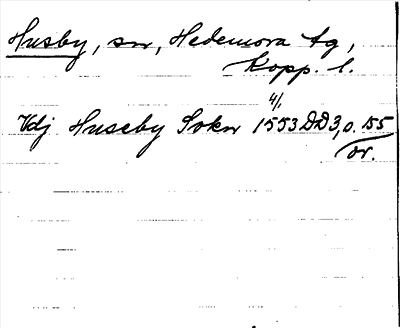 Husby, sn, Hedemora tg,
Kopp. l.
4/1
Vdj Huseby Sokn 1553 DD3, o. 155
or.